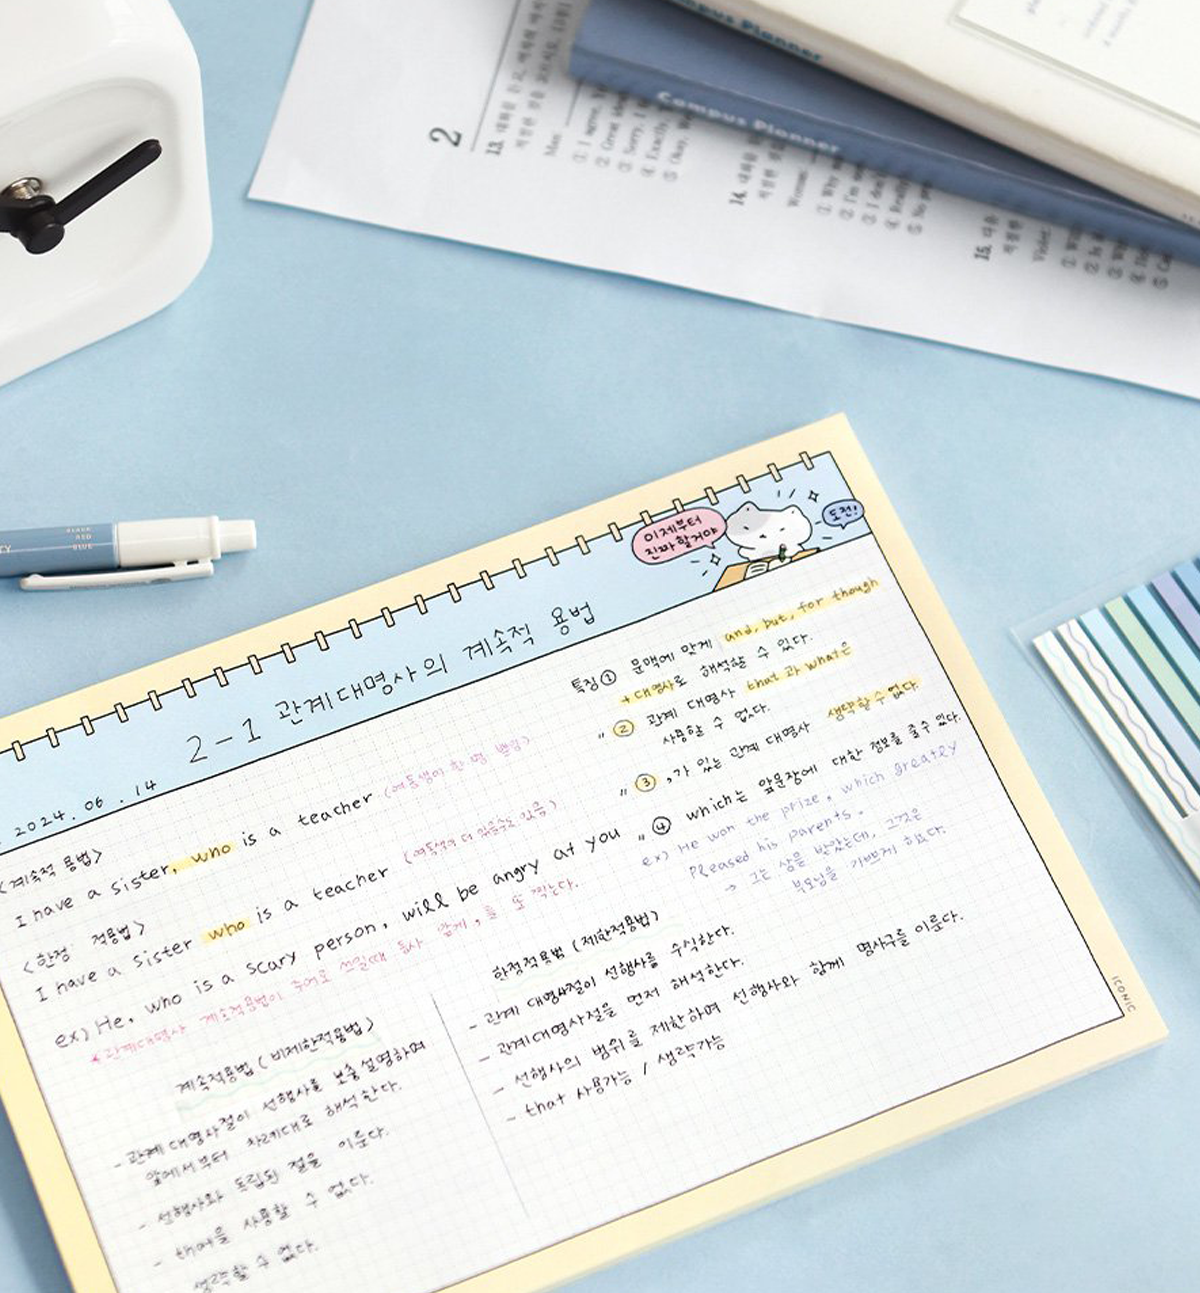 Campus Planner
Campus Planner
2
13. 대화를 듣고,
Man:
① I agree.
② Great
③ Sorry, I
④ Exactly.
⑤ Okay.
14. 대화를
Woman:
① Why
② I'm
③ I don't
④ Really
⑤ No
15. 다음
Violet
BLACK
RED
BLUE
이제부터
진짜 할거야
도전!
2-1 관계대명사의 계속적 용법
2024. 06. 14
<계속적 용법>
I have a sister, who is a teacher (여동생이 한 명 뿐임)
<한정적용법>
I have a sister who is a teacher (여동생이 더 있을수도 있음)
ex) He, who is a scary person, will be angry at you
*관계대명사 계속적용법이 주어로 쓰일때 동사 앞에 , 를 또 찍는다.
계속적용법 (비제한적용법)
- 관계대명사절이 선행사를 보충설명하며
앞에서부터 차례대로 해석한다.
- 선행사와 독립된 절을 이룬다.
- that을 사용할 수 없다.
생략할 수 없다.
한정적용법 (제한적용법)
- 관계 대명사절이 선행사를 수식한다.
- 관계대명사절을 먼저 해석한다.
- 선행사의 범위를 제한하며 선행사와 함께 명사구를 이룬다.
- that 사용가능 / 생략가능
특징 ① 문맥에 맞게 and, but, for though
+ 대명사로 해석할 수 있다.
" ② 관계 대명사 that 과 what은
사용할 수 없다.
" ③ ,가 있는 관계 대명사 생략할 수 없다.
" ④ which는 앞문장에 대한 정보를 줄 수 있다.
ex) He won the prize, which greatly
pleased his parents.
→ 그는 상을 받았는데, 그것은
부모님을 기쁘게 하였다.
ICONIC